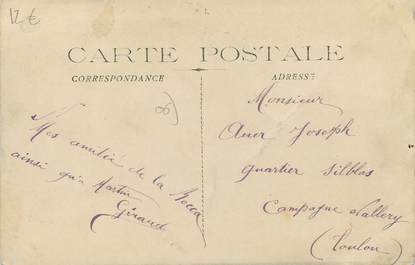 12 €
CARTE POSTALE
CORRESPONDANCE
ADRESSE
06
Monsieur
Auer Joseph
quartier Silblas
Campagne Vallery
(Toulon)
Mes amitiés de la Bocca
ainsi qu'a Martin
Giraud